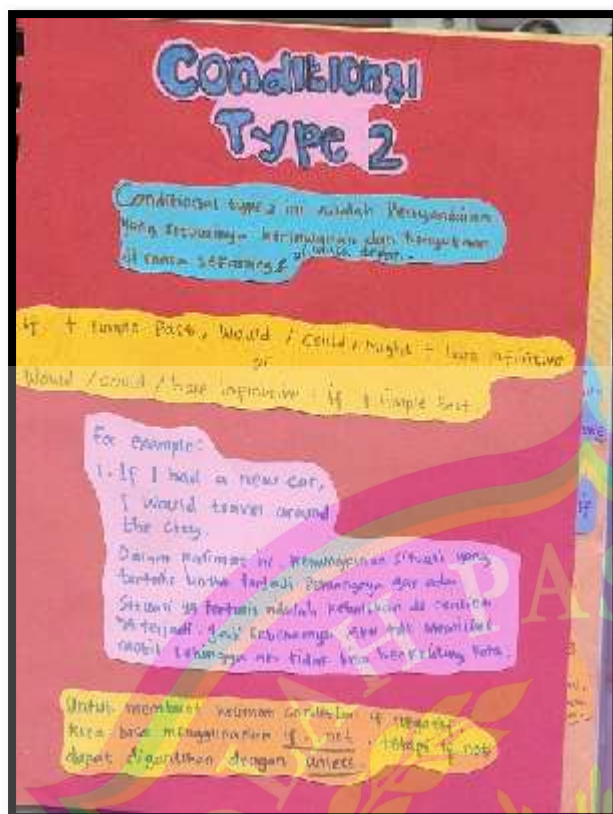 Conditional
Type 2
Conditional type 2 ini adalah Pengandaian
yang
di masa sekarang
if + simple Past, Would / could / might + bare infinitive
or
Would / could / bare infinitive + if + simple past
For example:
1. If I had a new car,
I would travel around
the city.
Dalam kalimat ini, kemungkinan situasi yang
tertulis untuk terjadi
Situasi yg tertulis adalah kebalikan dr
yg terjadi. Jadi sebenarnya aku tdk memiliki
mobil sehingga aku tidak bisa berkeliling kota.
Untuk membuat kalimat conditional if negatif,
kita bisa menggunakan if not, tetapi if not
dapat digantikan dengan unless.
PA